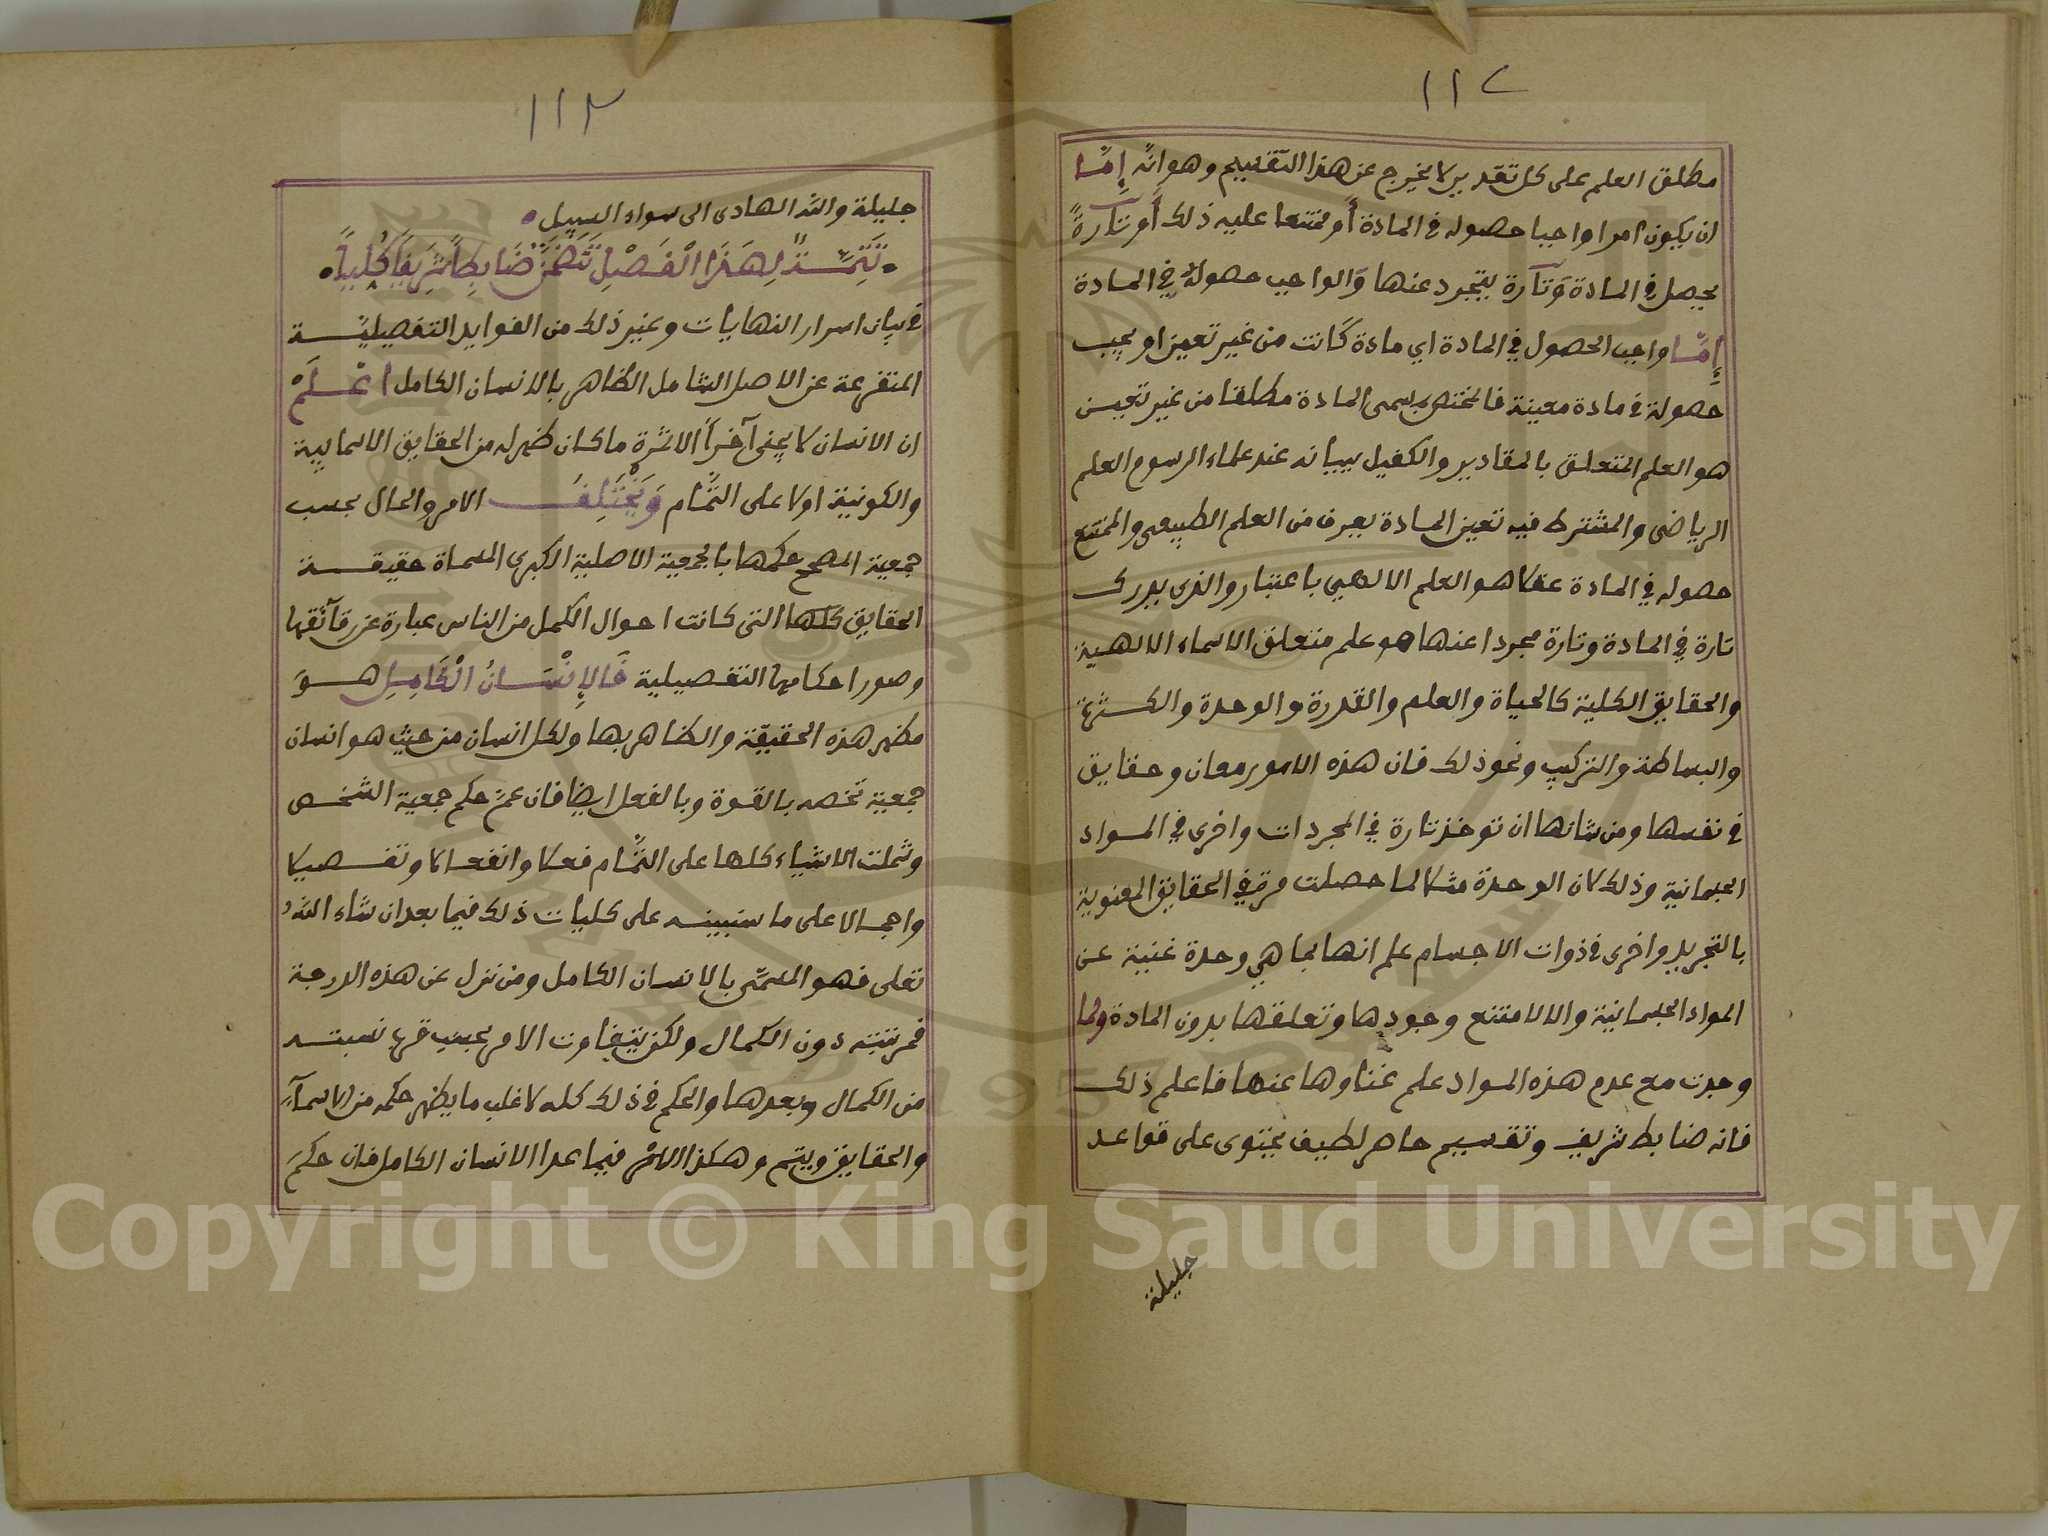 ١١٢
مطلق العلم على كل تقدير لا يخرج عن هذا التقسيم وهو انه إمّا
ان يكون امرا واجبا حصوله في المادة أو ممتنعا عليه ذلك أو تارةً
يحصل في المادة وَتارة يتجرد عنها وَالواجب حصوله في المادة
إِمّا واجب الحصول في المادة اي مادة كانت من غير تعين او يجب
حصولة في مادة معينة فالمختص بمسمى المادة مطلقا من غير تعين
هو العلم المتعلق بالمقادير والكفيل ببيانه عند علماء الرسوم العلم
الرياضى والمشترط فيه تعين المادة يعرف من العلم الطبيعى والممتنع
حصوله في المادة عقلا هو العلم الالهي باعتبار والذى يدرك
تارة في المادة وتارة مجردا عنها هو علم متعلق الاسماء الالهية
والحقايق الكلية كالحياة والعلم والقدرة والوحدة والكثرة
والبساطة والتركيب ونحو ذلك فان هذه الامور معان وحقايق
في نفسها ومن شانها ان توخذ تارة في المجردات واخرى في المواد
الجسمانية وذلك لان الوحدة مثلا لما حصلت مرة في الحقايق المعنوية
بالتجريد واخرى في ذوات الاجسام علم انها بما هي وحدة غنية عن
المواد الجسمانية والا لامتنع وجودها وتعلقها بدون المادة ولما
وجدت مع عدم هذه المواد علم غناوها عنها فاعلم ذلك
فانه ضابط شريف وتقسيم حاصر لطيف يحتوى على قواعد
جليلة
١١٣
جليلة والله الهادى الى سواء السبيل
تَتِمَّةٌ لِهَذَا الْفَصْلِ تَتَضَمَّنُ ضَابِطاً شَرِيفَاً كُلِيَاً
في بيان اسرار النهايات وغير ذلك من الفوايد التفصيلية
المتفرعة عن الاصل الشامل الظاهر بالانسان الكامل اعْلَمْ
ان الانسان لا يجنى آخراً الا ثمرة ما كان ظهر له من الحقايق الاسمايية
والكونية اولا على التمام وَيَخْتَلِفُ الامر والحال بحسب
جمعية المصحح حكمها بالجمعية الاصلية الكبرى المسماة حقيقة
الحقايق كلها التى كانت احوال الكمل من الناس عبارة عن رقآئقها
وصور احكامها التفصيلية فَالإِنْسَانُ الْكَامِلِ هوَ
مظهر هذه الحقيقة والظاهر بها ولكل انسان من حيث هو انسان
جمعية تخصه بالقوة وبالفعل ايضا فان عمّ حكم جمعية الشخص
وشملت الاشياء كلها على التمام فعلا وانفعالا وتفصيلا
واجمالا على ما سنبينه على كليات ذلك فيما بعد ان شاء اللهُ
تعلى فهو المسمّى بالانسان الكامل ومن نزل عن هذه الدرجة
فمرتبته دون الكمال ولكن يتفاوت الامر بحسب قرب نسبته
من الكمال وبعدها والحكم في ذلك كله لاغلب ما يظهر حكمه من الاسمآءِ
والحقايق ويتم وهكذا الامر فيما عدا الانسان الكامل فان حكمَ
Copyright © King Saud University